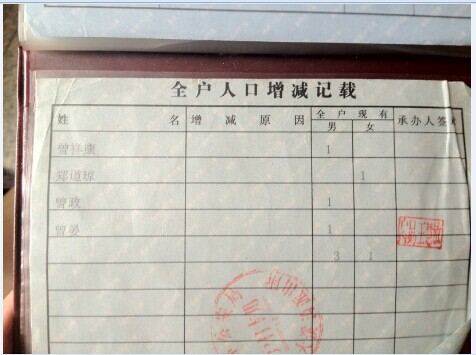 全户人口增减记载
姓名 增减原因 全户现有 承办人签
男 女
曾祥康 1
郑道琼 1
曾政 1
曾晏 1
3 1